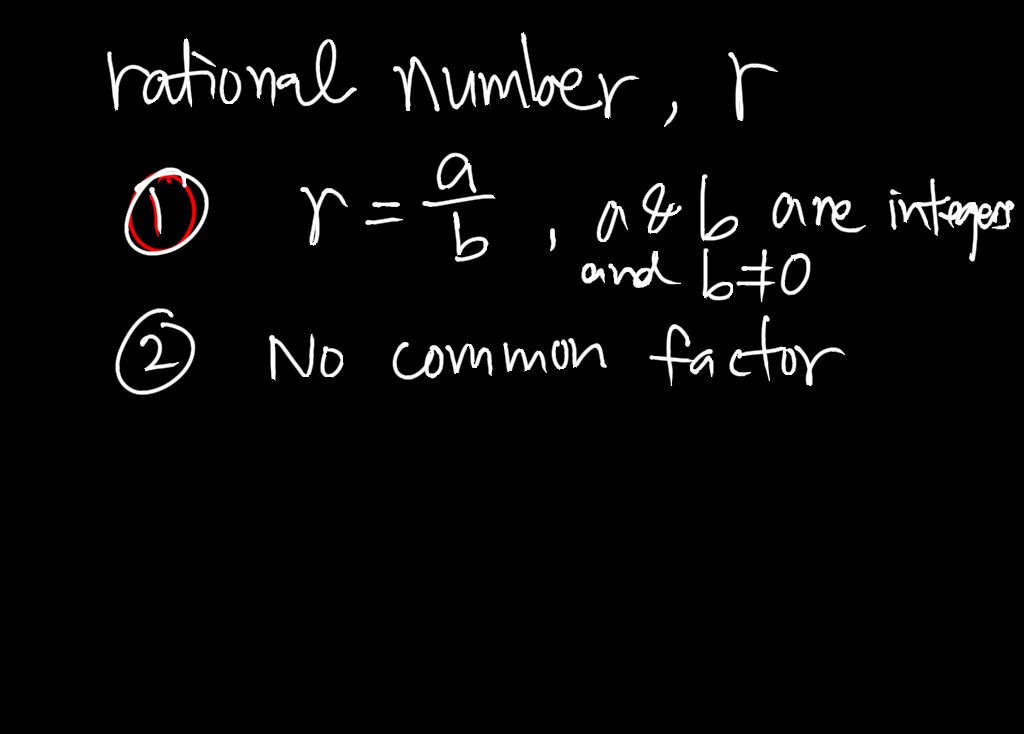 rational number, r
① r = a/b, a & b are integers
and b ≠ 0
② No common factor